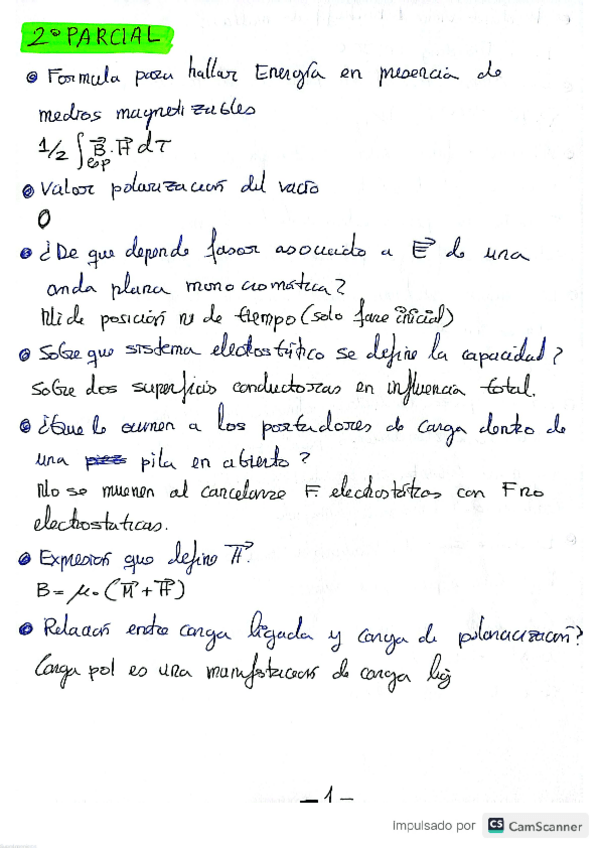 2º PARCIAL
Formula para hallar Energía en presencia de
medios magnetizables
1/2 ∫esp B⃗ · H⃗ dτ
Valor polarización del vacío
0
¿De que depende fasor asociado a E⃗ de una
onda plana monocromática?
Ni de posición ni de tiempo (solo fase inicial)
Sobre que sistema electrostático se define la capacidad?
Sobre dos superficies conductoras en influencia total.
¿Que le ocurren a los portadores de carga dentro de
una pila en abierto?
No se mueven al cancelarse F. electrostáticas con F no
electrostaticas.
Expresión que define H⃗.
B = μ₀ (M⃗ + H⃗)
Relación entre carga ligada y carga de polarización?
Carga pol es una manifestación de carga lig
- 1 -
Impulsado por CS CamScanner